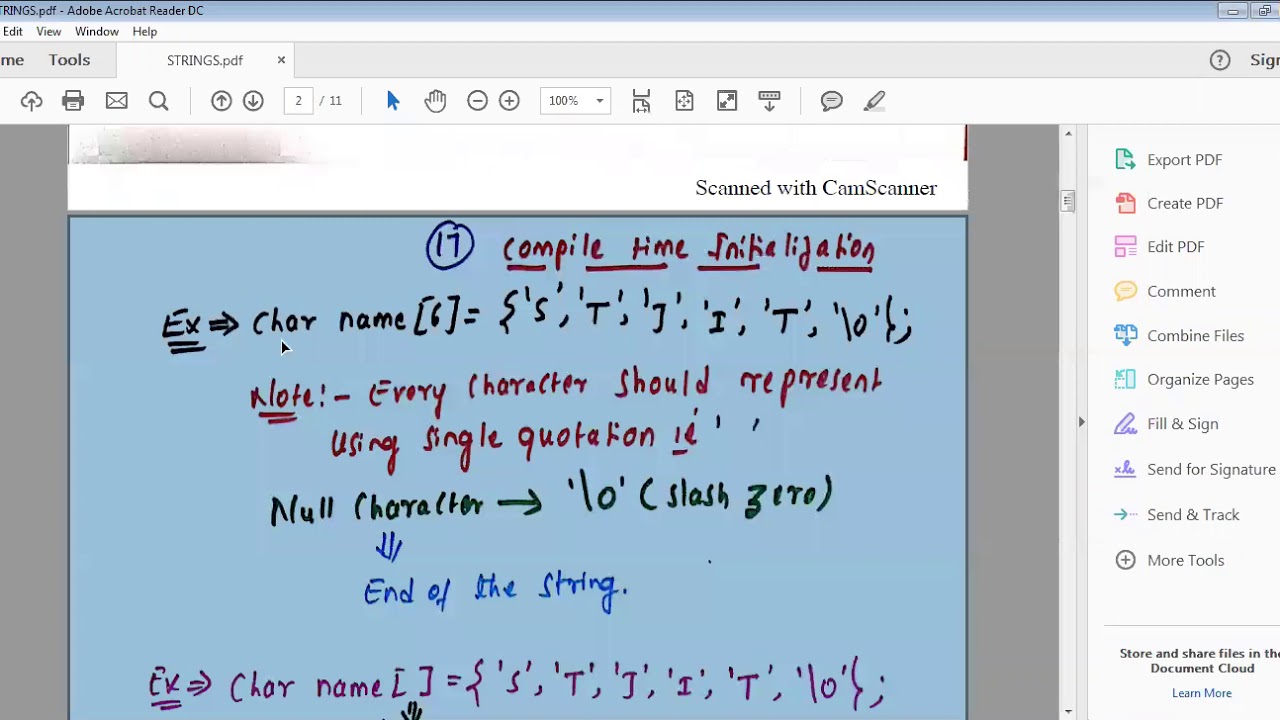 TRINGS.pdf - Adobe Acrobat Reader DC
Edit View Window Help
me Tools STRINGS.pdf × Sign
2 / 11 100%
Scanned with CamScanner
17 Compile time Initialization
Ex ⇒ Char name [6] = {'S', 'T', 'J', 'I', 'T', '\0'};
Note:- Every Character should represent
using single quotation ie ' '
Null Character → '\0' (slash zero)
⇓
End of the string.
Ex ⇒ Char name [ ] = {'S', 'T', 'J', 'I', 'T', '\0'};
Export PDF
Create PDF
Edit PDF
Comment
Combine Files
Organize Pages
Fill & Sign
Send for Signature
Send & Track
More Tools
Store and share files in the
Document Cloud
Learn More